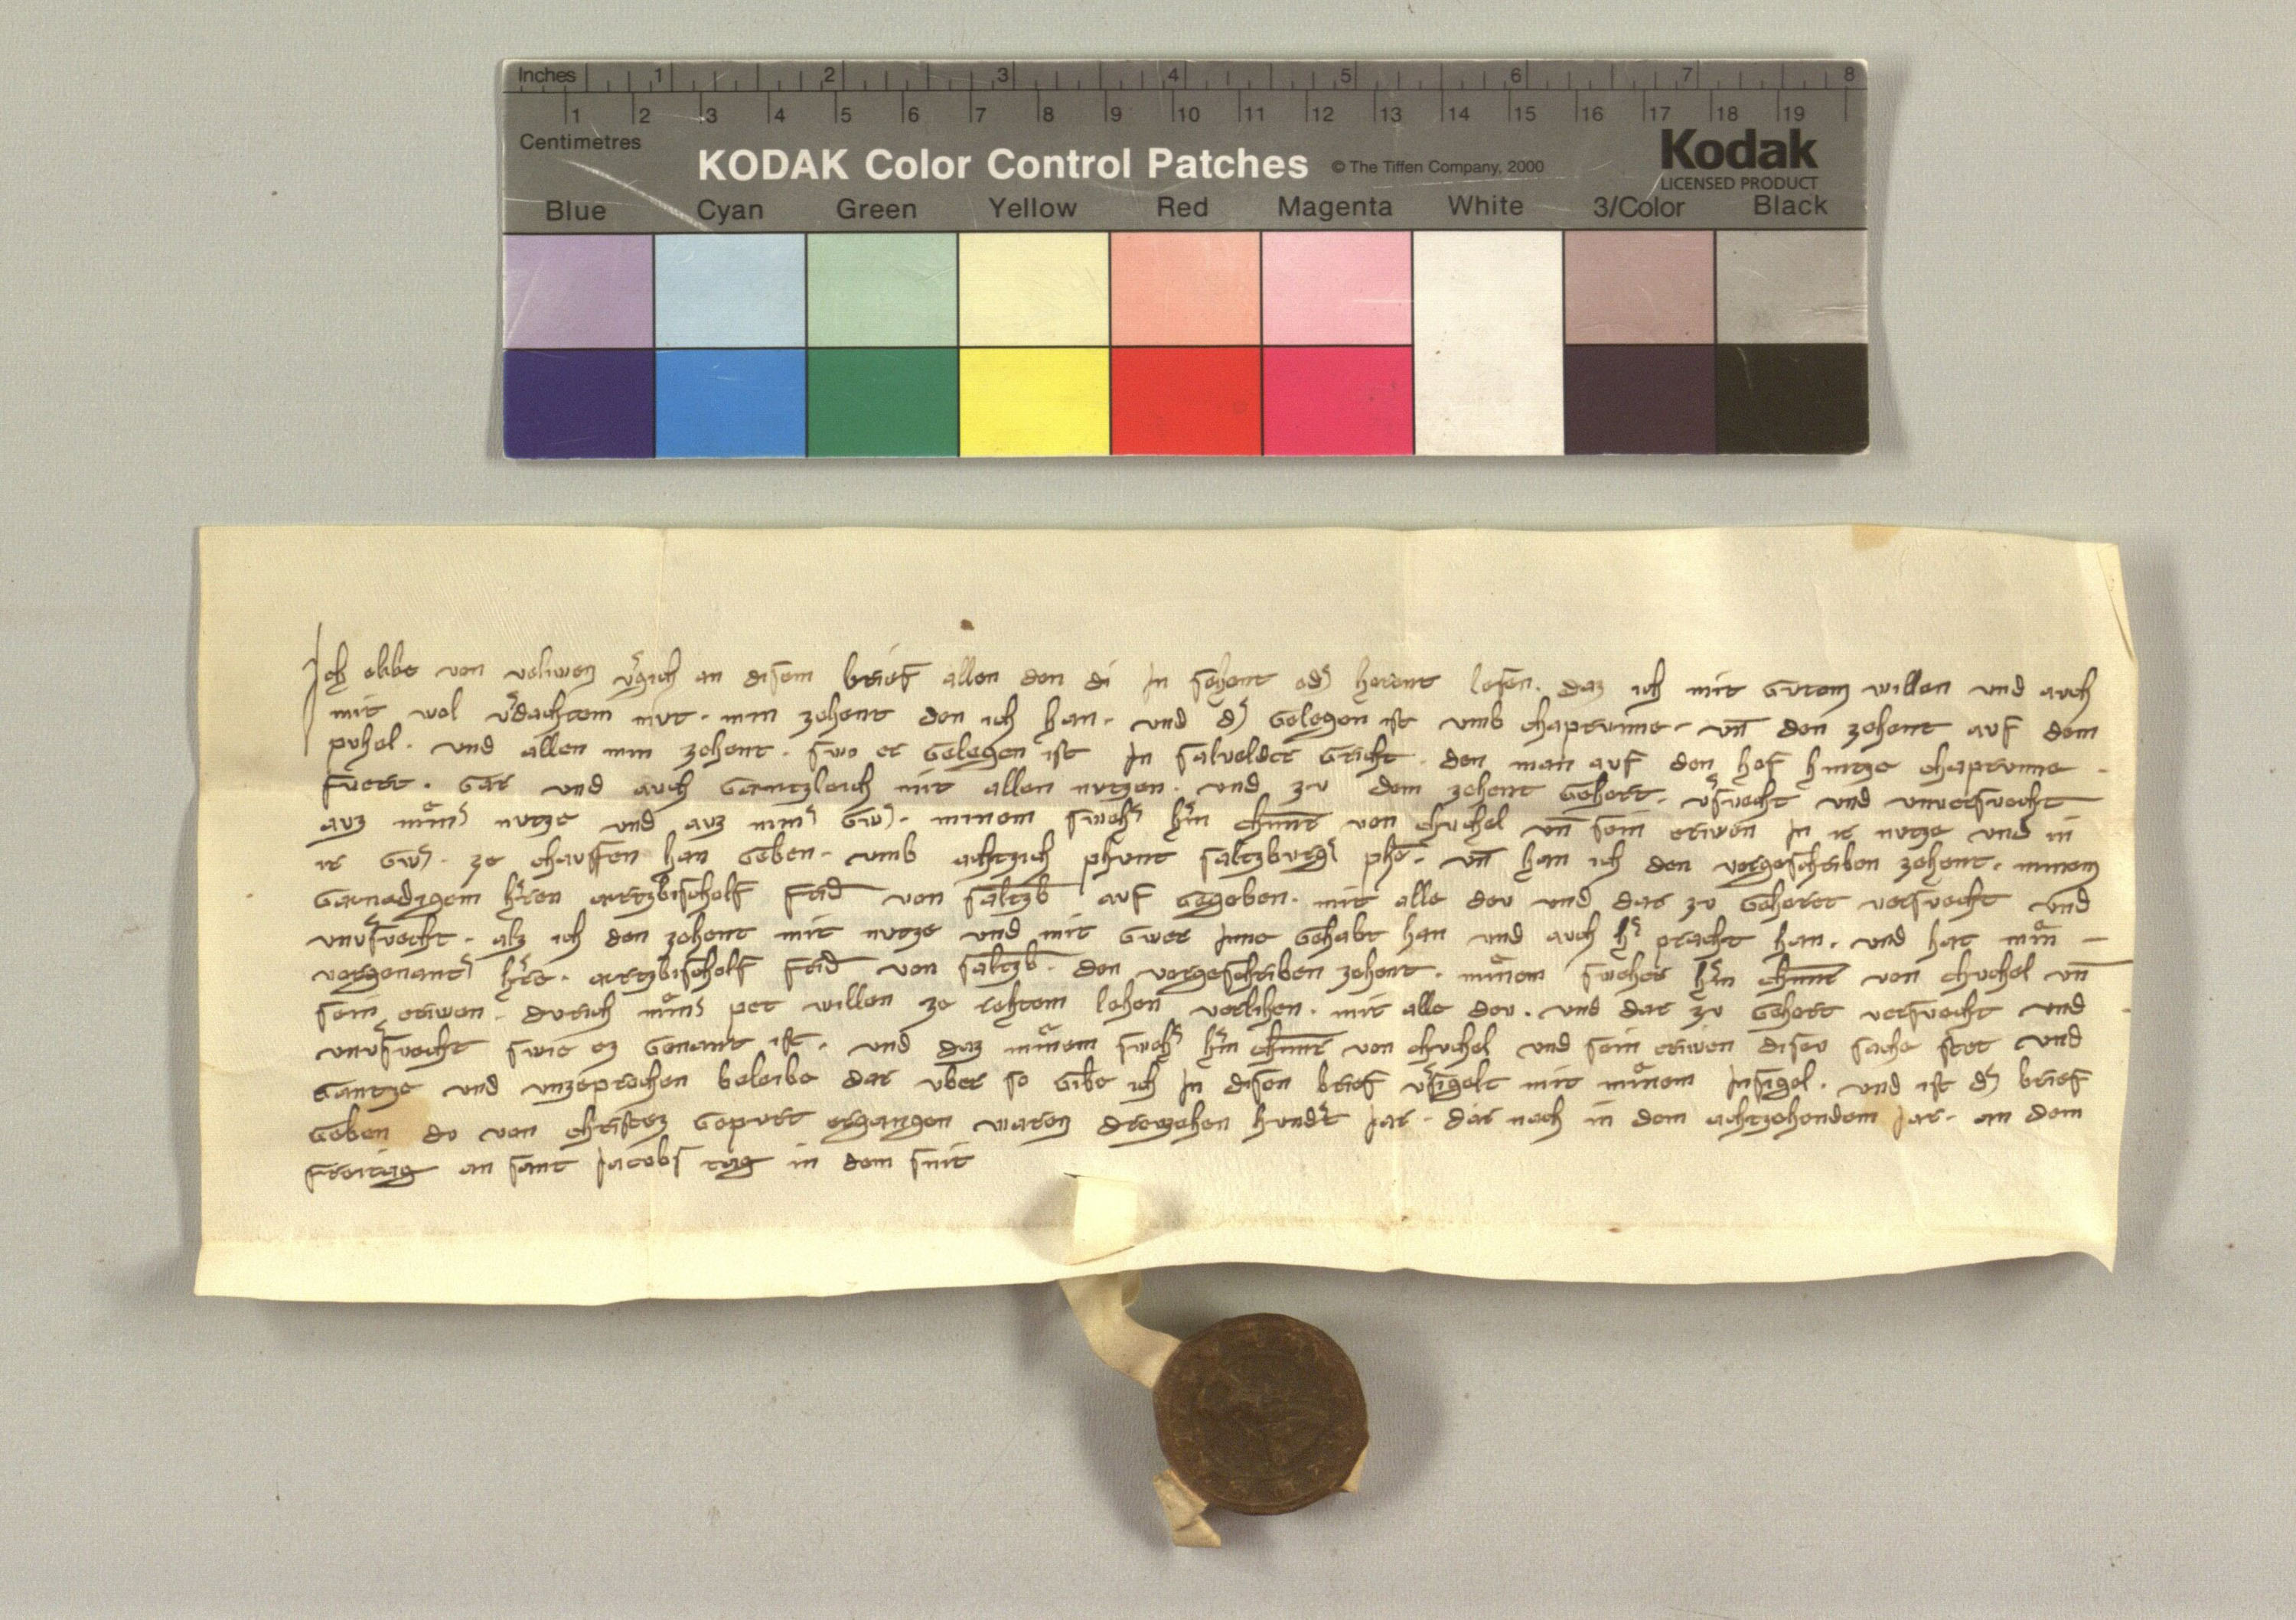 Inches 1 2 3 4 5 6 7 8
1 2 3 4 5 6 7 8 9 10 11 12 13 14 15 16 17 18 19
Centimetres
KODAK Color Control Patches © The Tiffen Company, 2000 Kodak
LICENSED PRODUCT
Blue Cyan Green Yellow Red Magenta White 3/Color Black
Ich ekke von velwen v͛gich an disem brief allen den di In sehent od͛ horent lesen. daz ich mit gutem willen und auch
mit wol v͛dachtem mut. min zehent den ich han. und d͛ gelegen ist umb chaprunne. vn̄ den zehent auf dem
puhel. und allen min zehent. swo er gelegen ist In salvelder gricht. den man auf den hof hintze chaprunne
fuert. gar und auch gantzleich mit allen nutzen. und zu dem zehent gehort. v͛suecht und unuersuecht
auz min͛ nutze und auz min͛ gw͛. minem sweh͛ h͛n chunr̄ von chuchel vn̄ sein eriwen In ir nutze und in
ir gw͛. ze chauffen han geben. umb achtzich phunt saltzburg͛ phē. vn̄ han ich den vorgeschriben zehent. minem
genadigem h͛ren aertzbischolf frid̄ von saltzb̄ auf gegeben. mit alle dev und dar zu gehoret versuecht und
unv͛suecht. alz ich den zehent mit nutze und mit gwer Inne gehabt han und auch h͛ pracht han. und hat min
vorgenant͛ h͛re. aertzbischolf frid̄ von saltzb̄. den vorgeschriben zehent. minem sweher h͛n chunr̄ von chuchel vn̄
sein eriwen. durich min͛ pet willen ze rehtem lehen verlihen. mit alle dev. und dar zu gehort versuecht und
unv͛suecht swie ez genant ist. und daz minem sweh͛ h͛n chunr̄ von chuchel und sein eriwen disev sache stet und
gantze und unzeprochen beleibe dar uber so gibe ich In disen brief v͛sigelt mit minem Insigel. und ist d͛ brief
geben do von christez gepurt ergangen waren drewzehen hund͛t Jar. dar nach in dem achtzehendem Jar. an dem
freitag an sant Jacobs tag in dem snit